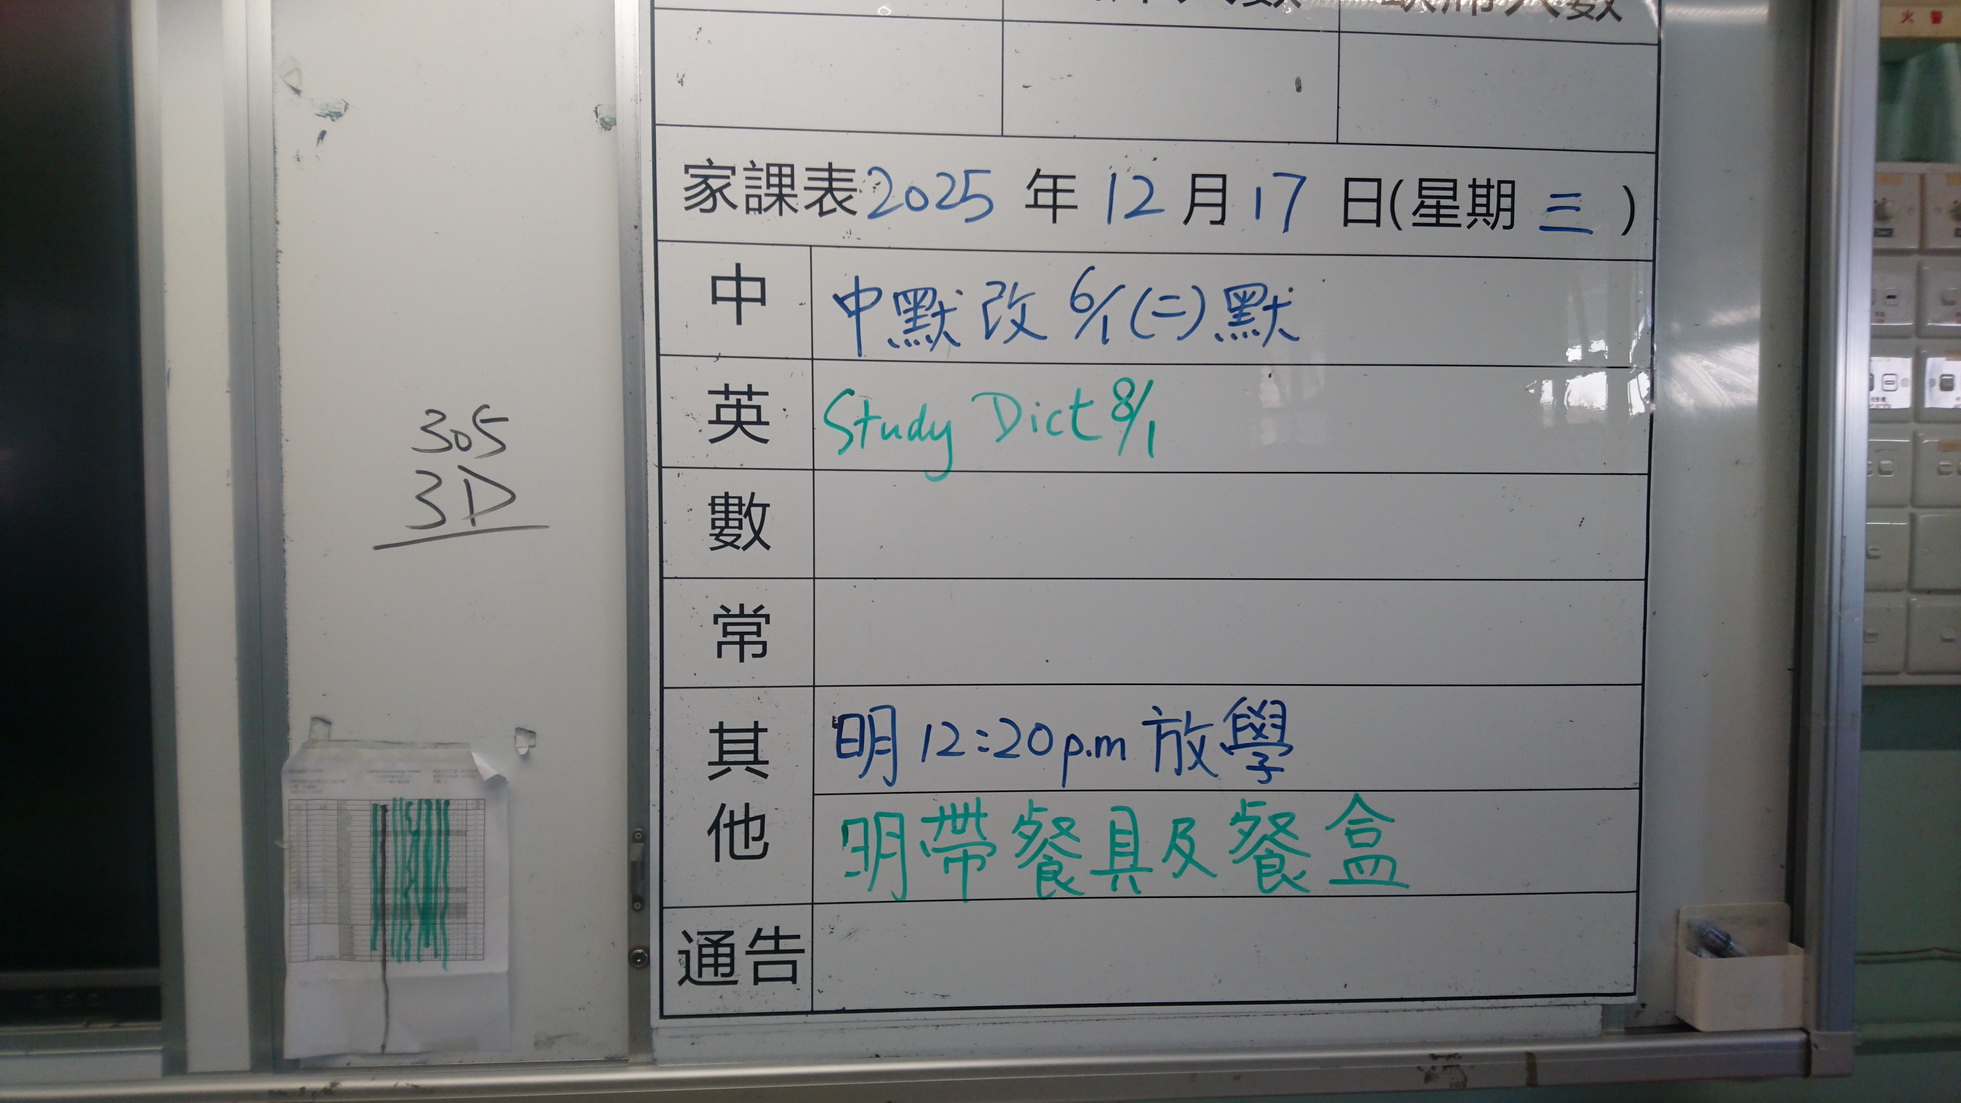 火警
家課表2025年12月17日(星期三)
中 中默改 6/1(二)默
英 Study Dict 8/1
數
常
其他 明12:20p.m放學
明帶餐具及餐盒
通告
305
3D